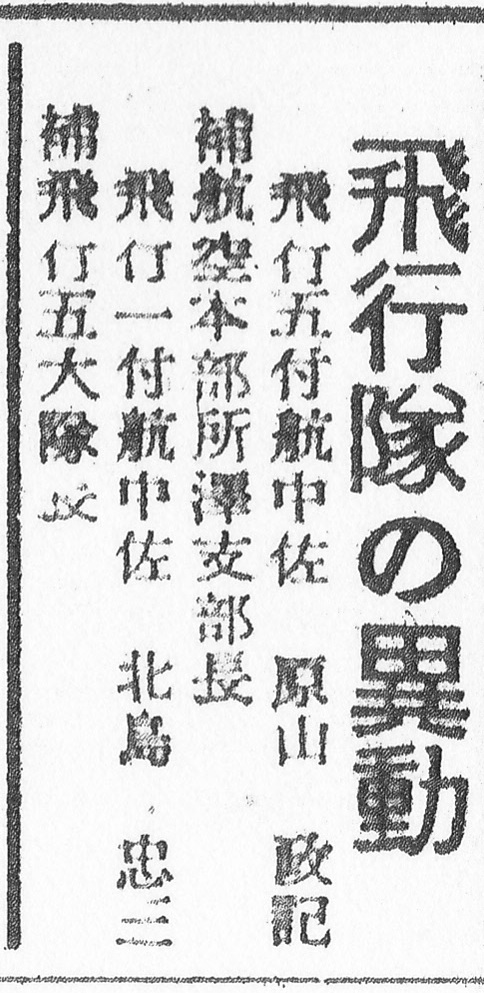 飛行隊の異動
飛行五付航中佐 原山 政記
補航空本部所澤支部長
飛行一付航中佐 北島 忠三
補飛行五大隊長